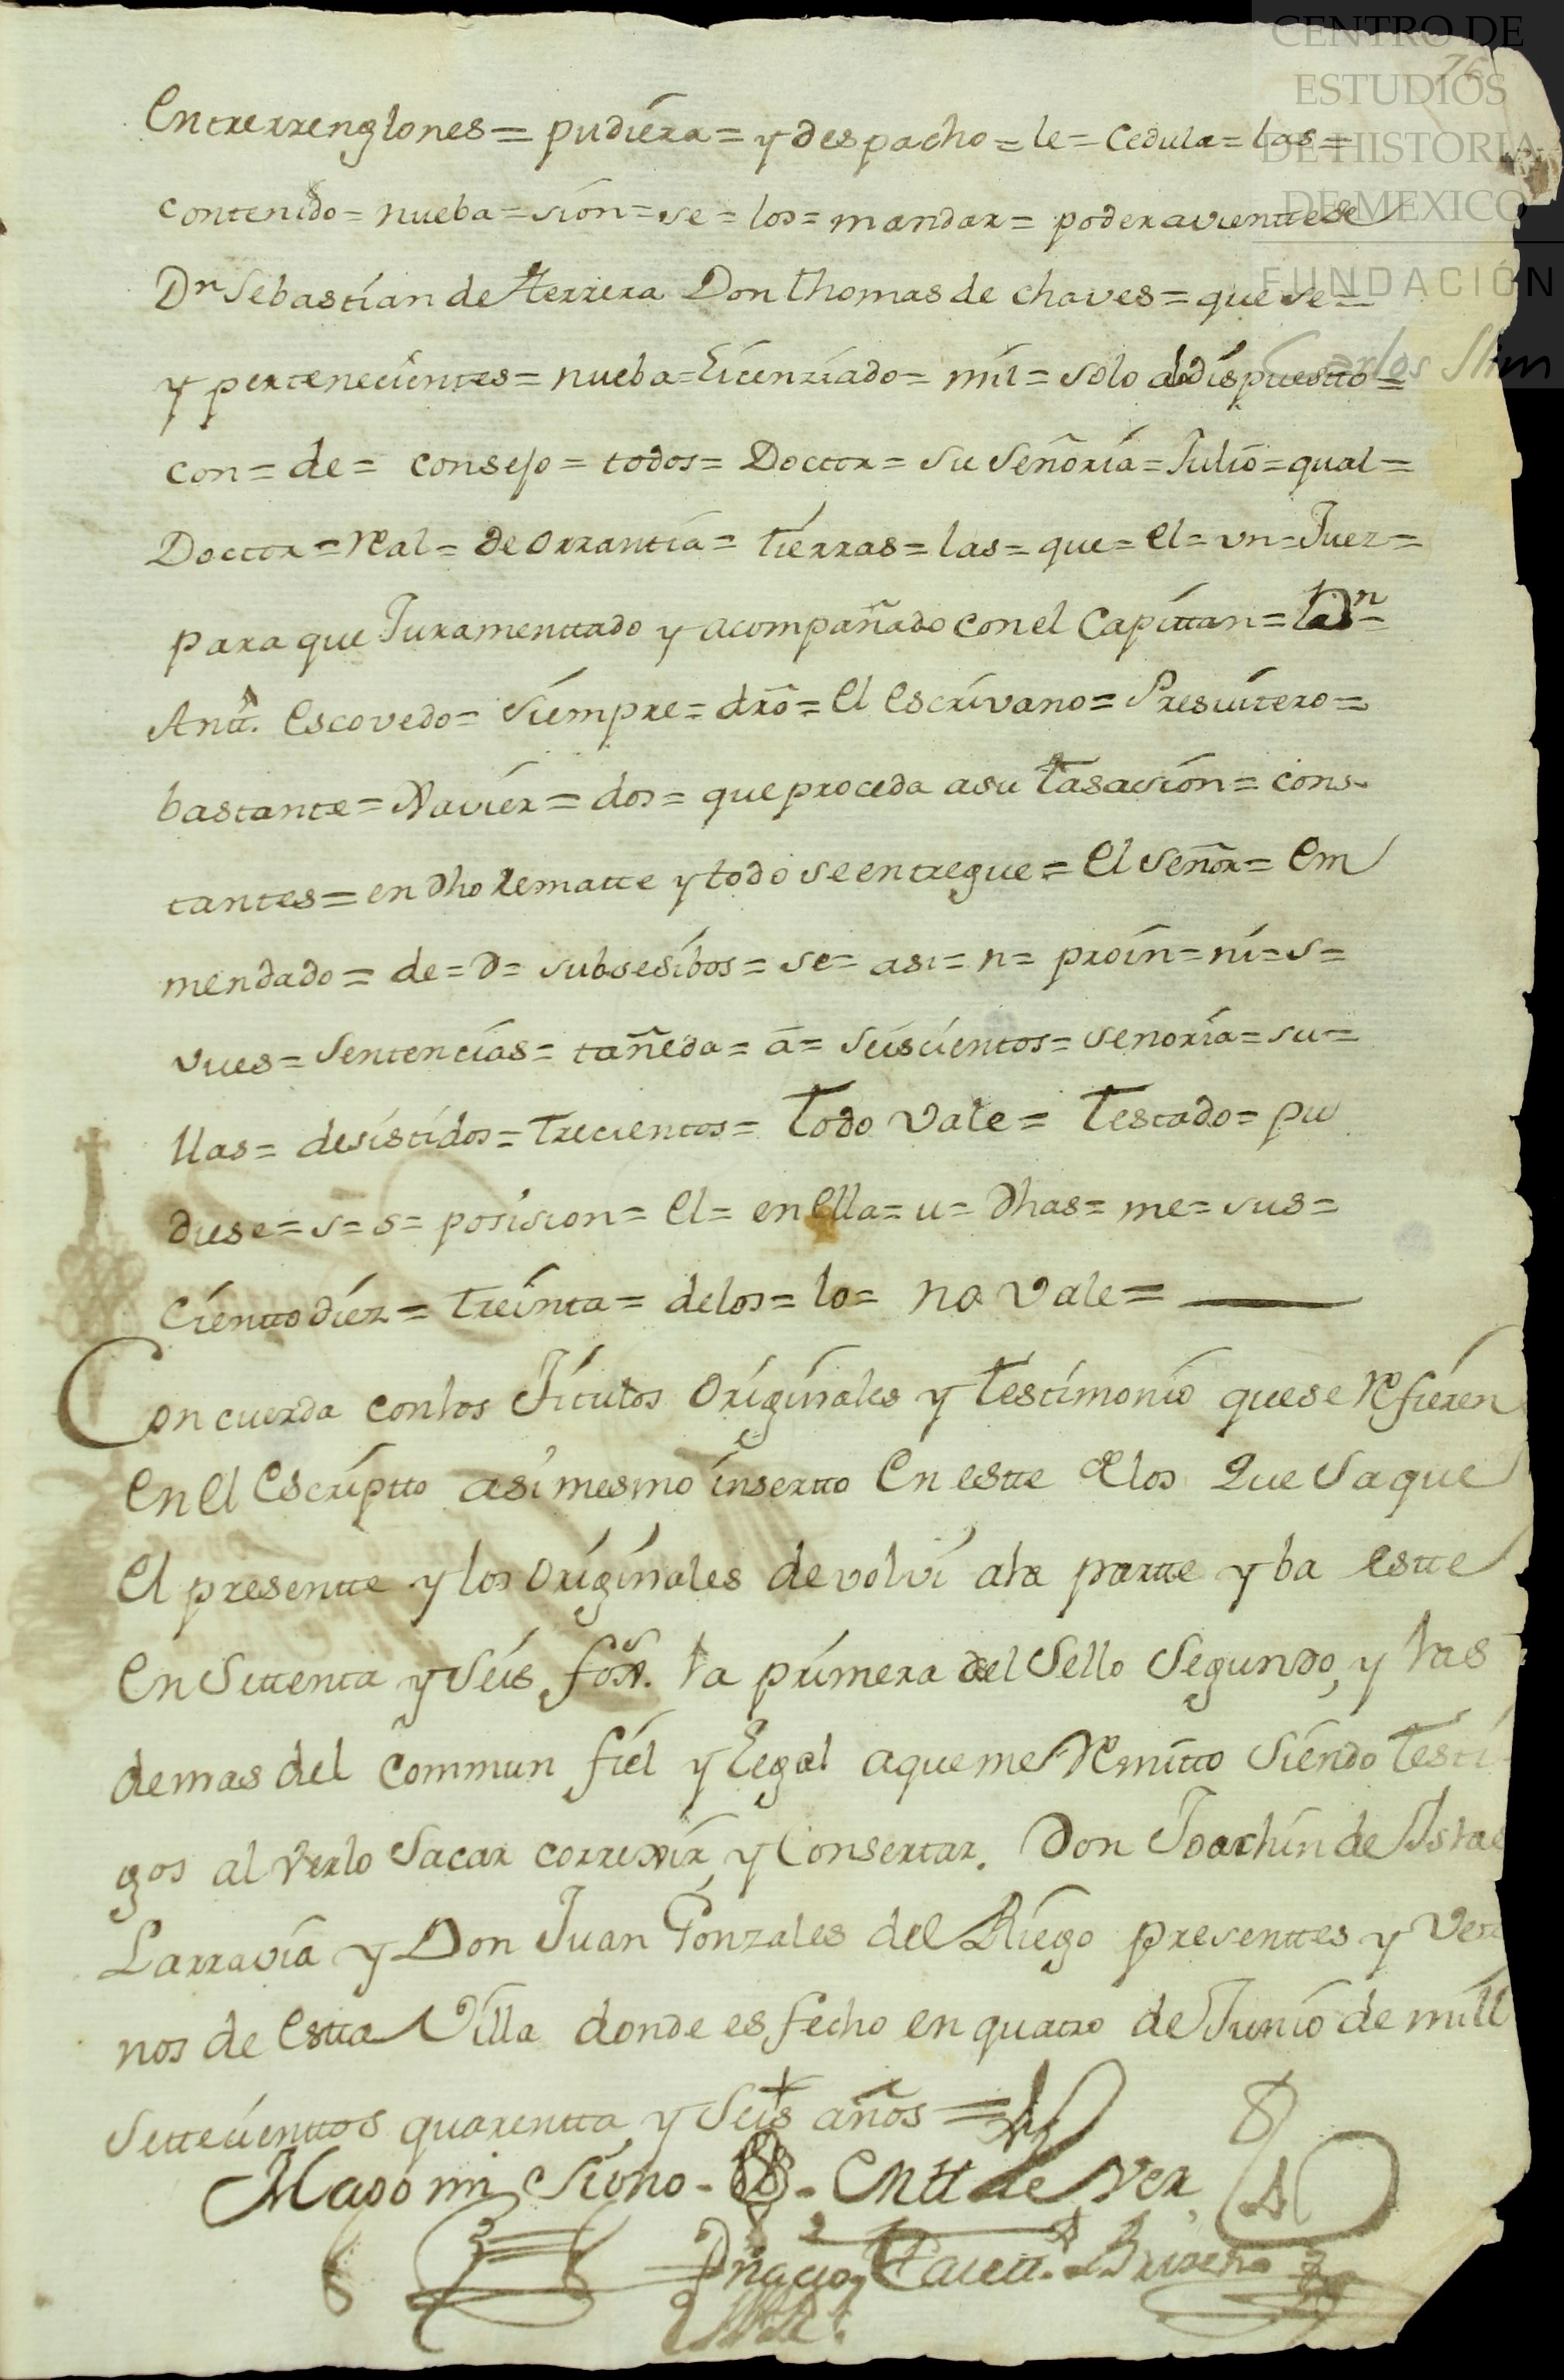 CENTRO DE
ESTUDIOS
DE HISTORIA
DE MEXICO
FUNDACIÓN
Carlos Slim
76
Entrerrenglones = pudiera = y despacho = le = Cedula = las =
contenido = nueba = sion = se = los = mandar = poder avientte se
Dn Sebastian de Herrera Don thomas de chaves = que se =
y pertenecientes = nueba = Licenziado = mil = solo a dispuestto =
con = de = consejo = todos = Docttor = su Señoria = Julio = qual =
Docttor = Real = de Orrantia = tierras = las = que = el = un = Juez =
para que Juramenttado y acompañado con el Capittan = Dn =
Antt. Escovedo = Siempre = dro = El Escrivano = Presvitero =
bastante = Xavier = dos = que proceda a su tasacion = cons-
tantes = en dho Rematte y todo se entregue = El Señor = Em
mendado = de = d = subsesibos = se = asi = n = proin = ni = s =
vues = Sentencias = tañeda = a = Seiscientos = senoria = su =
llas = desistidos = trecientos = todo vale = testado = pu
diese = s = s = posision = El = en Ella = u = dhas = me = sus =
Cientto diez = treinta = de los = lo = no vale =
Concuerda con los Titulos Originales y testimonio que se Refieren
en el Escriptto asi mesmo insertto en estte de los que saque
el presentte y los originales devolvi a la partte y ba estte
en Settenta y seis foxs. la primera del sello segundo, y las
demas del Commun fiel y legal a que me Remitto siendo testi
gos al verlo sacar correxir y Consertar. Don Joachin de Isla
Larravia y Don Juan Gonzales del Riego presenttes y vez
nos de estta Villa donde es fecho en quatro de Junio de mill
Settecienttos quarentta y seis años =
Hago mi Signo - en tt de ver
Ygnacio